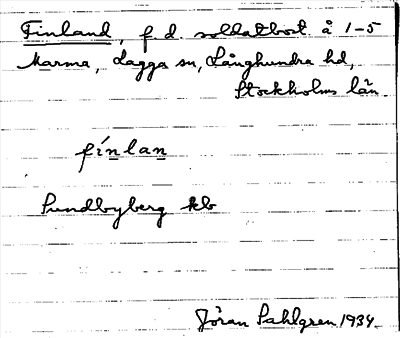 Finland, f. d. soldatbost å 1-5
Marma, Lagga sn, Långhundra hd,
Stockholms län
fínlan
Sundbyberg kb
Jöran Sahlgren 1934